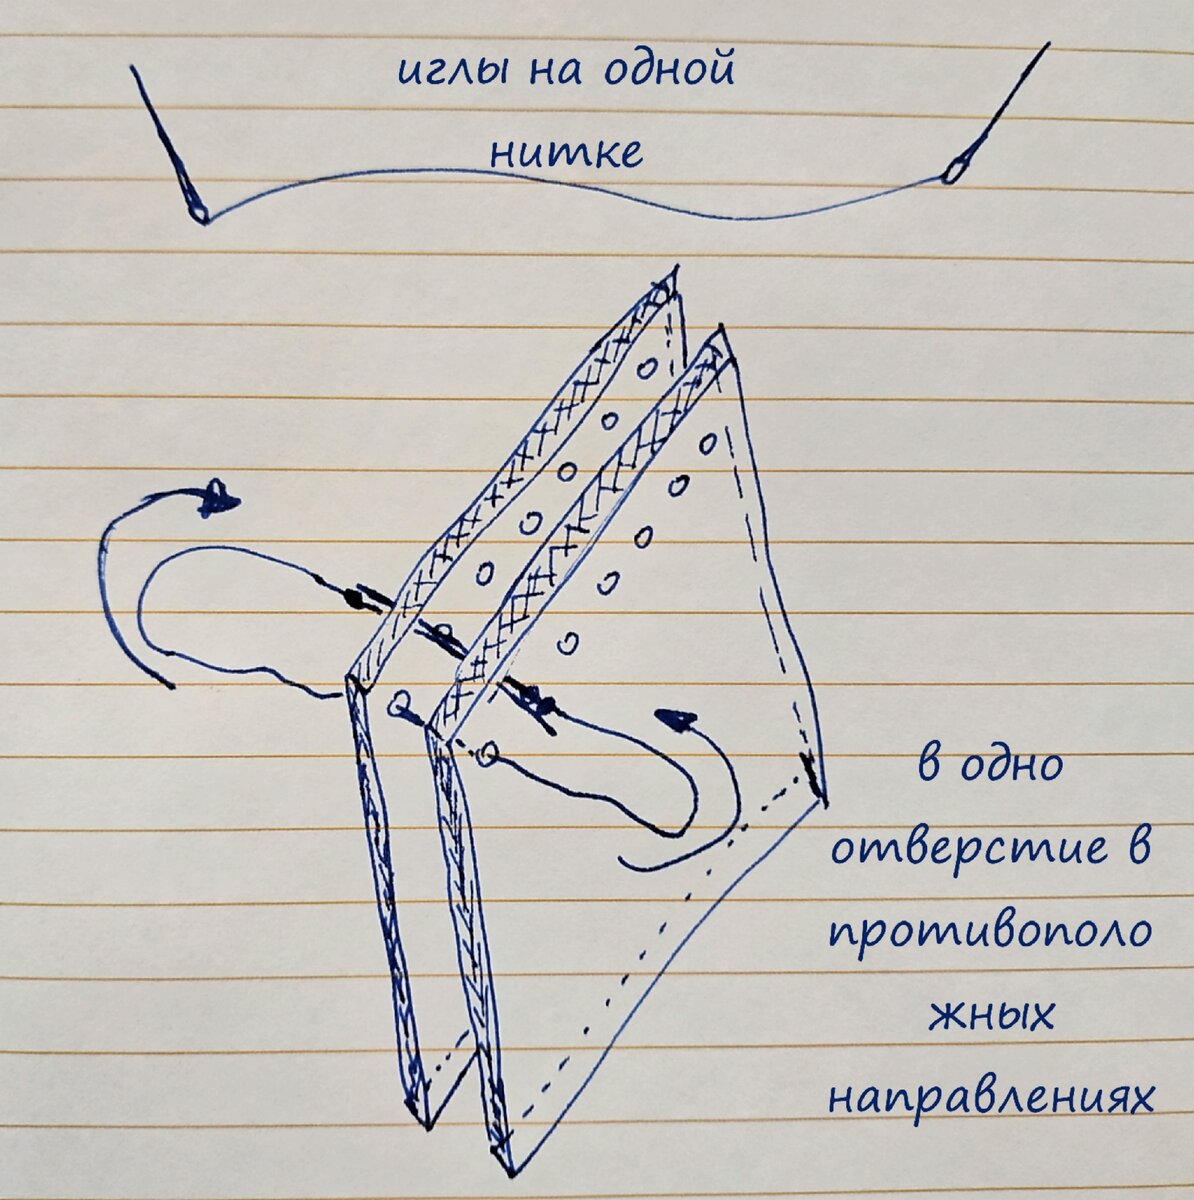 иглы на одной
нитке
в одно
отверстие в
противополо
жных
направлениях